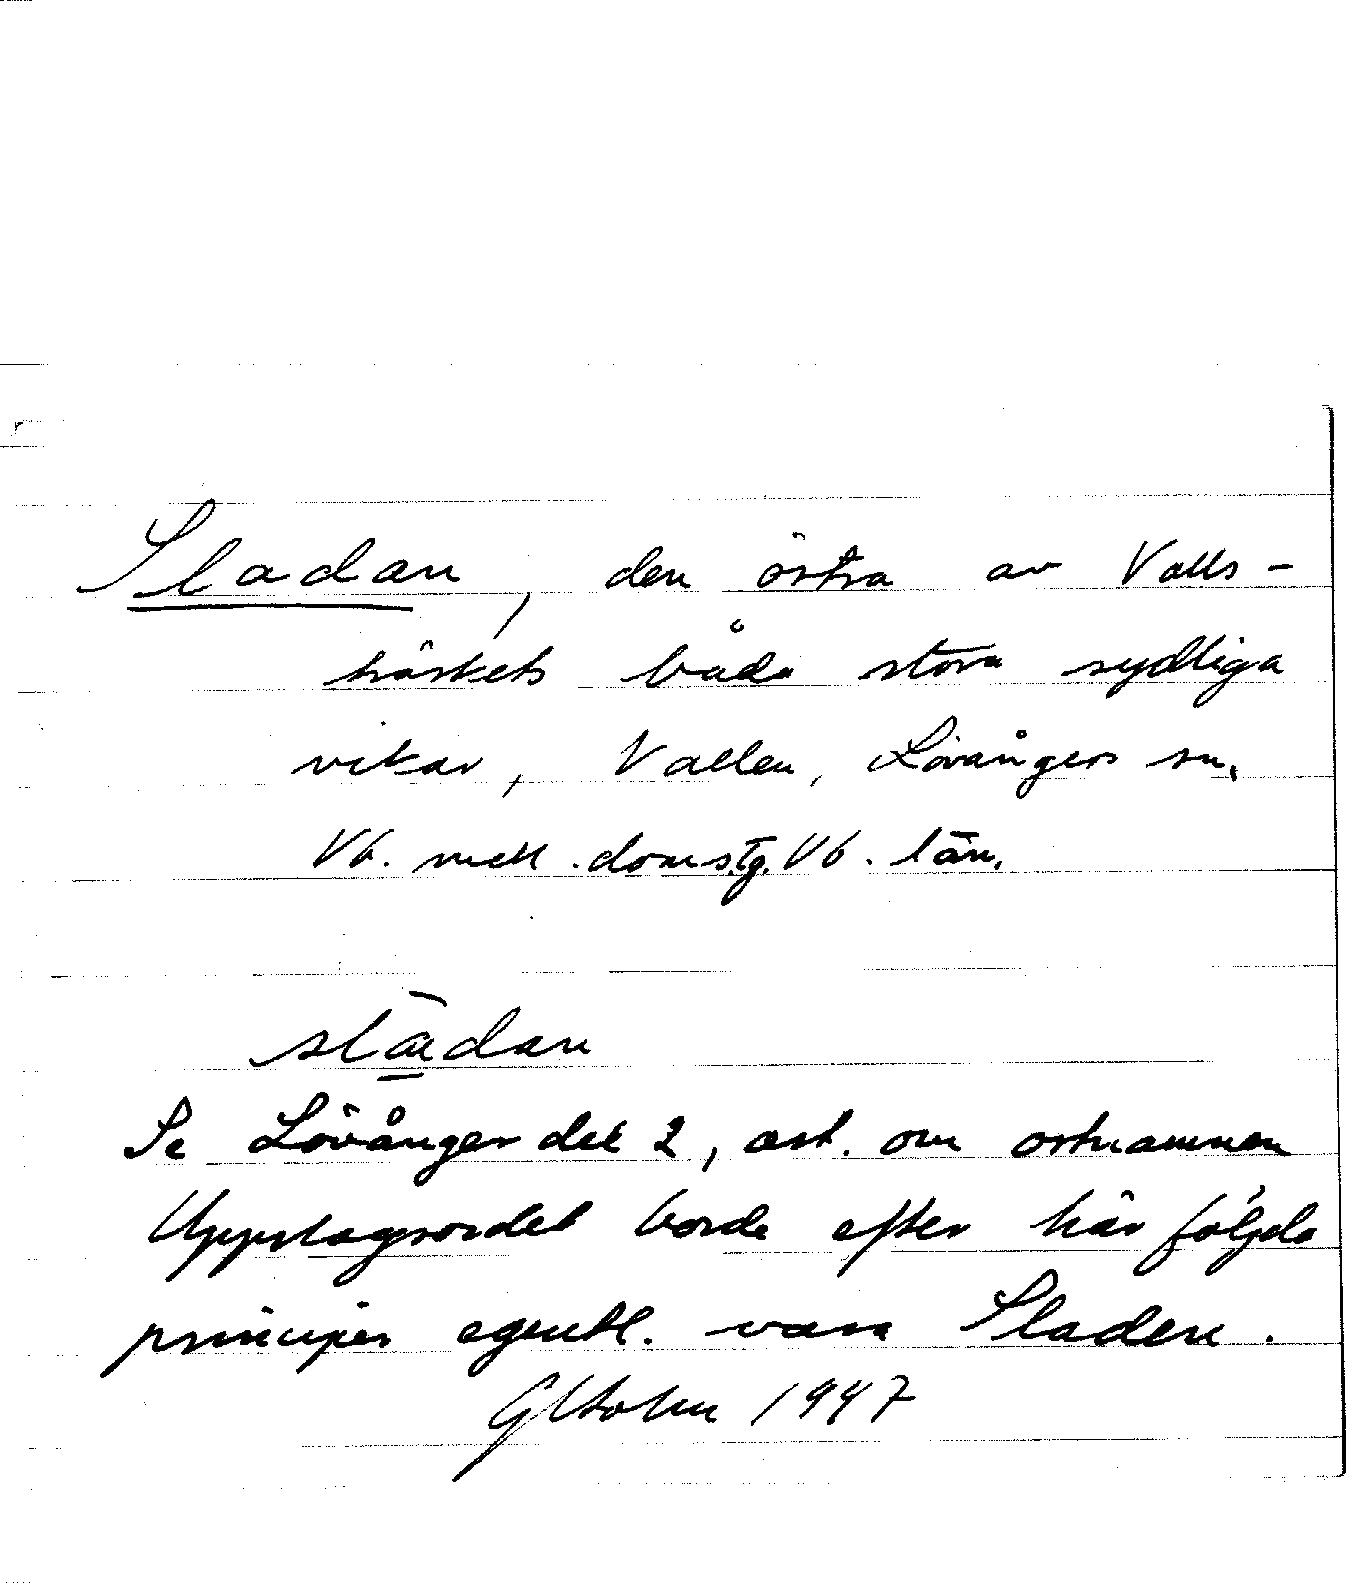 Sladan, den östra av Valls-
träskets båda stora sydliga
vikar, Vallen, Lövångers sn,
Vb. mell. domstg. Vb. län.
slæ̅dan
Se Lövånger del 2, art. om ortnamnen
Uppslagsordet borde efter här följda
principer egentl. vara Sladen.
1947